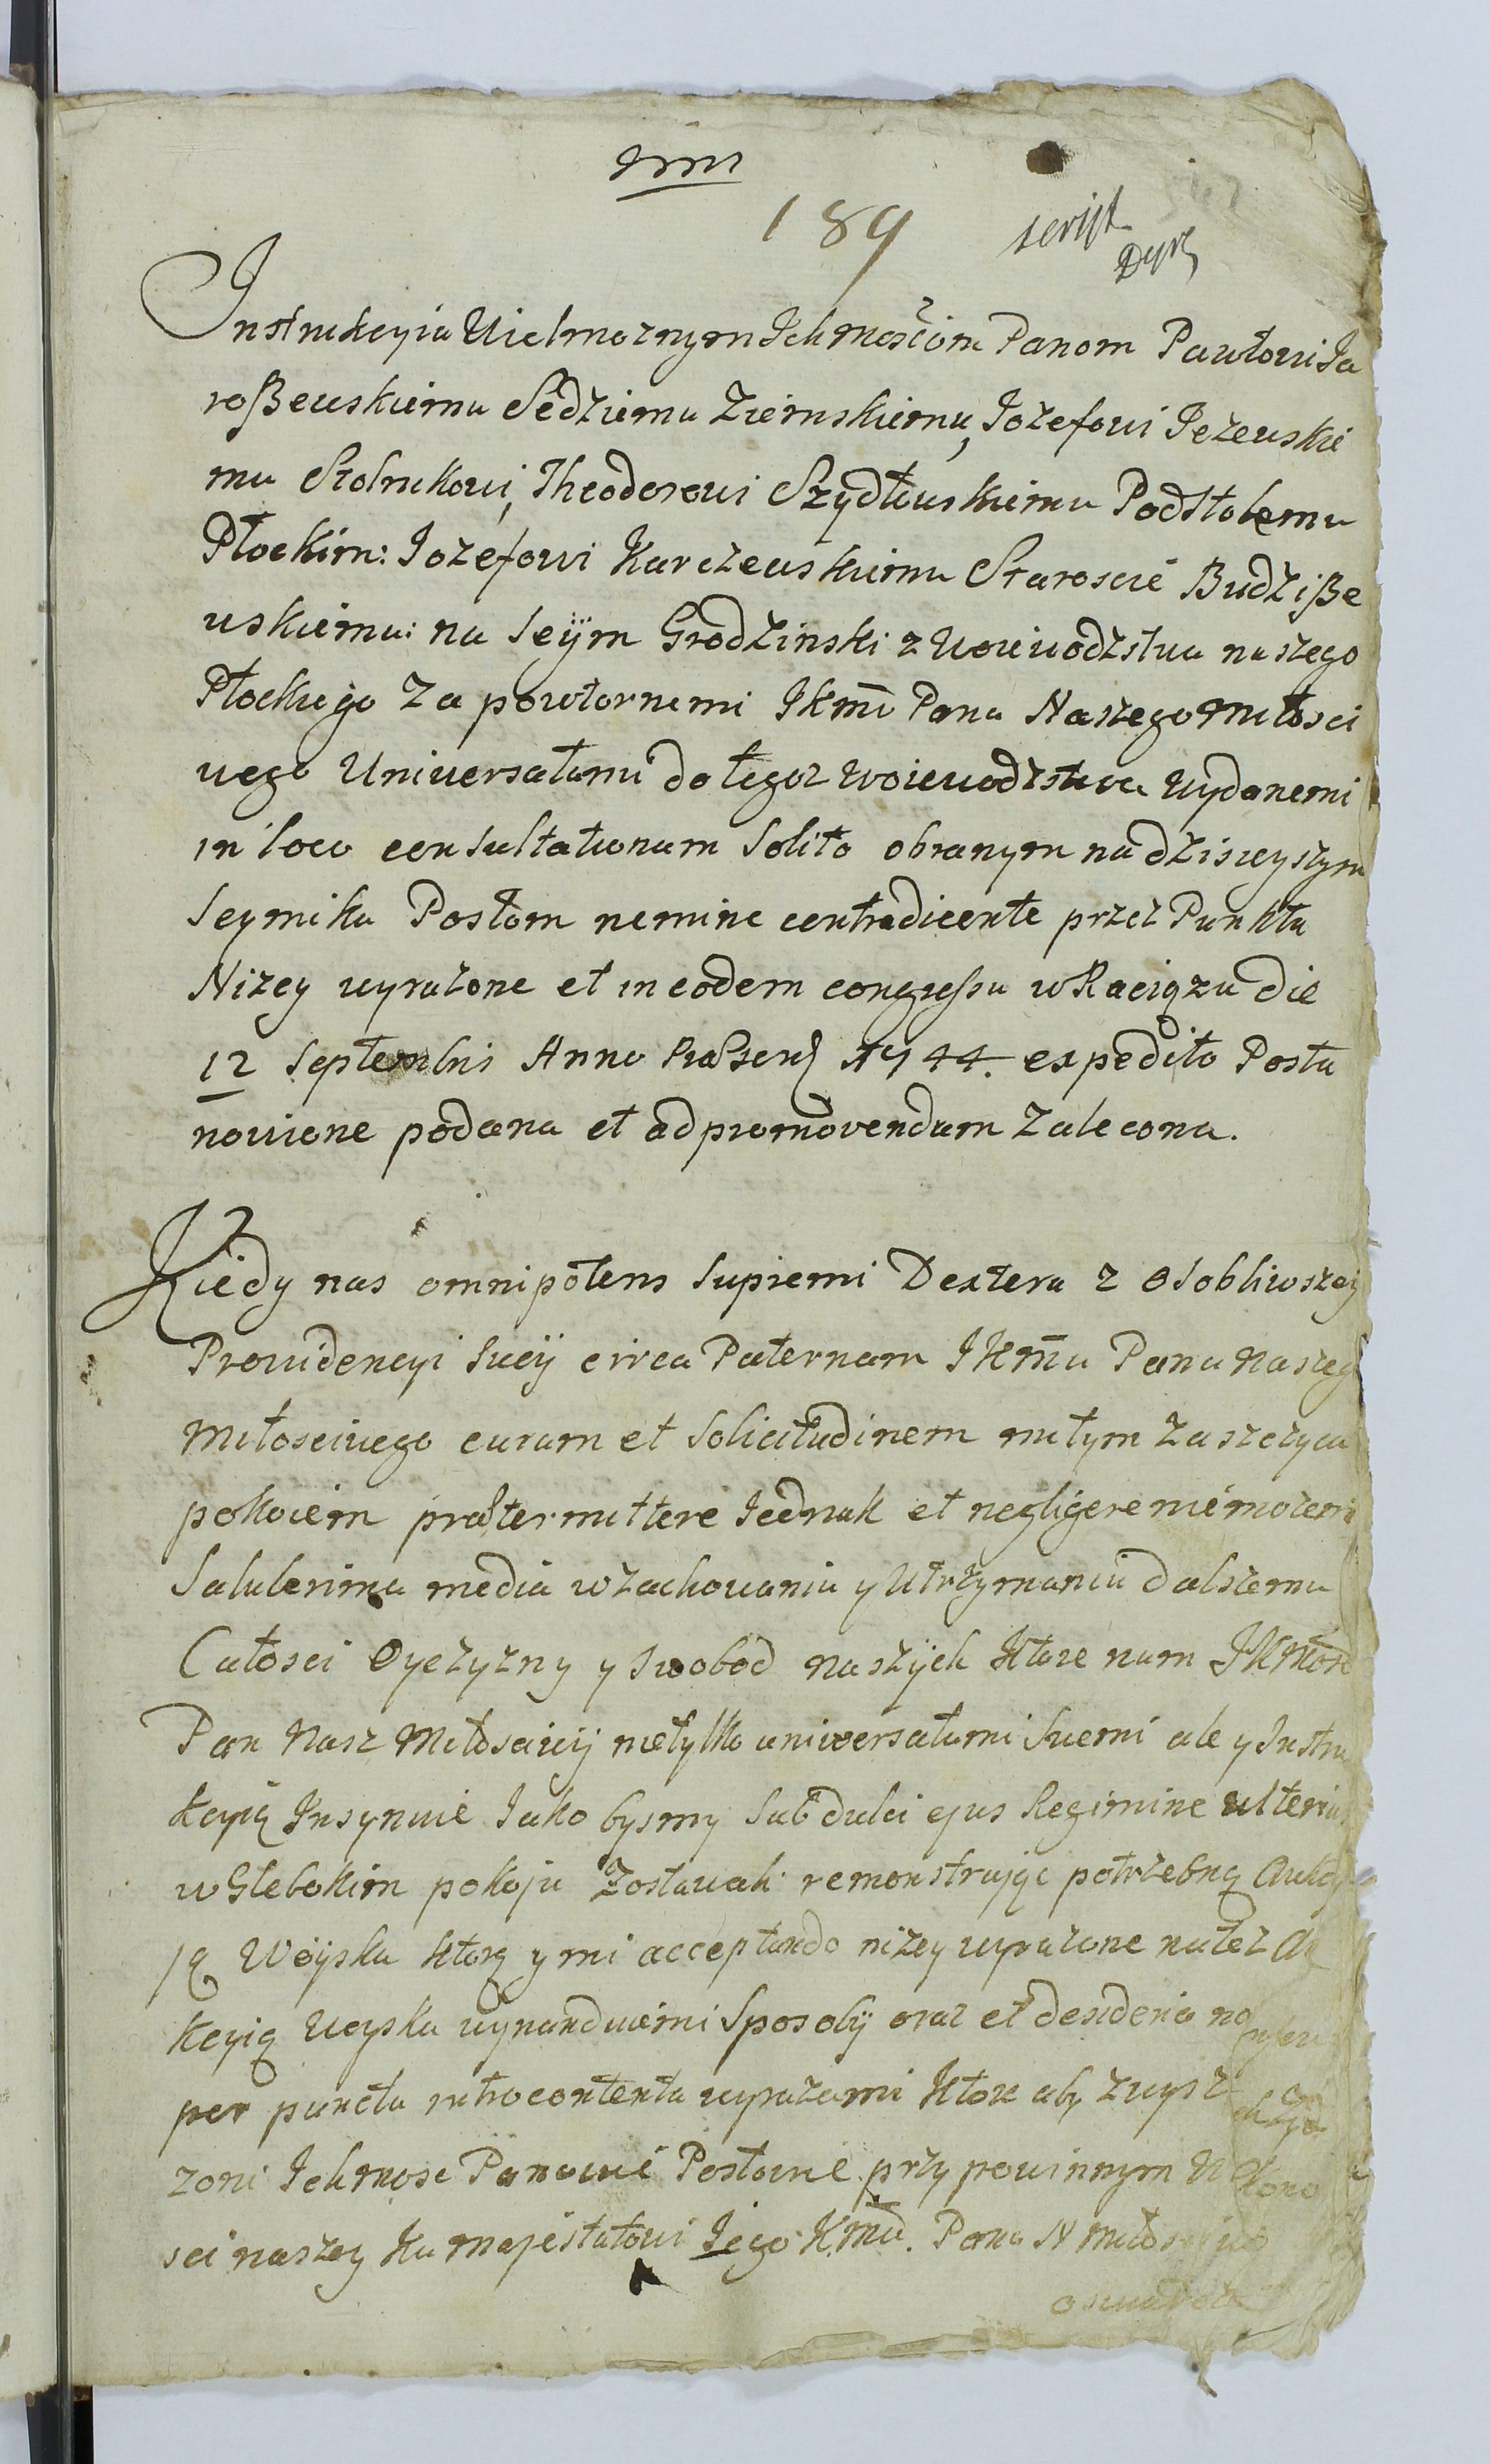 189
script
Instrukcyia Wielmoznym Ich Mościom Panom Pawłowi Ja
roßewskiemu Sędziemu Ziemskiemu, Jozefowi Jeżewskie
mu Stolnikowi, Theodorowi Szydłowskiemu Podstolemu
Płockim: Jozefowi Karczewskiemu Staroscie Budziße
wskiemu: na Seÿm Grodzinski z Woiewodztwa naszego
Płockiego za powtornemi JKmci Pana Naszego Miłosci
wego Uniwersałami do tegoz Woiewodztwa wydanemi
in loco consultationum solito obranym na dzisieyszym
Seymiku Posłom nemine contradicente przez Punkta
Nizey wyrażone et in eodem congressu w Raciązu die
12 Septembris Anno Præsen 1744. expedito Posta
nowione podana et ad promovendum zalecona.
Kiedy nas omnipotens supremi Dextera z osobliwszey
Prowidencyi swey circa Paternam JKmci Pana Naszeg
Miłosciwego curam et solicitudinem miłym zaszczyca
pokoiem prætermittere Jednak et negligere niemożem
Saluberima media w zachowaniu y utrzymaniu dalszemu
Całosci Oyczyzny y swobod naszÿch ktore nam JKMość
Pan Nasz Miłosciwÿ nietylko uniwersałami swemi ale y Instru
kcyią Insynuie Jako bysmy sub dulci ejus Regimine ulterius
w Głebokim pokoju zostawali remonstrując potrzebną Aukcy
ią Woÿska ktorą y mi acceptando niżey wyrażone na też Au
kcyią Woyska wynayduiemi Sposobÿ oraz et desideria na
per puncta introcontenta wyrażami ktore aby zwysz
zoni Ichmosc Panowie Posłowie przy powinnym
sci naszey ku majestatowi Jego Kmci. Pana N Miłosciwego